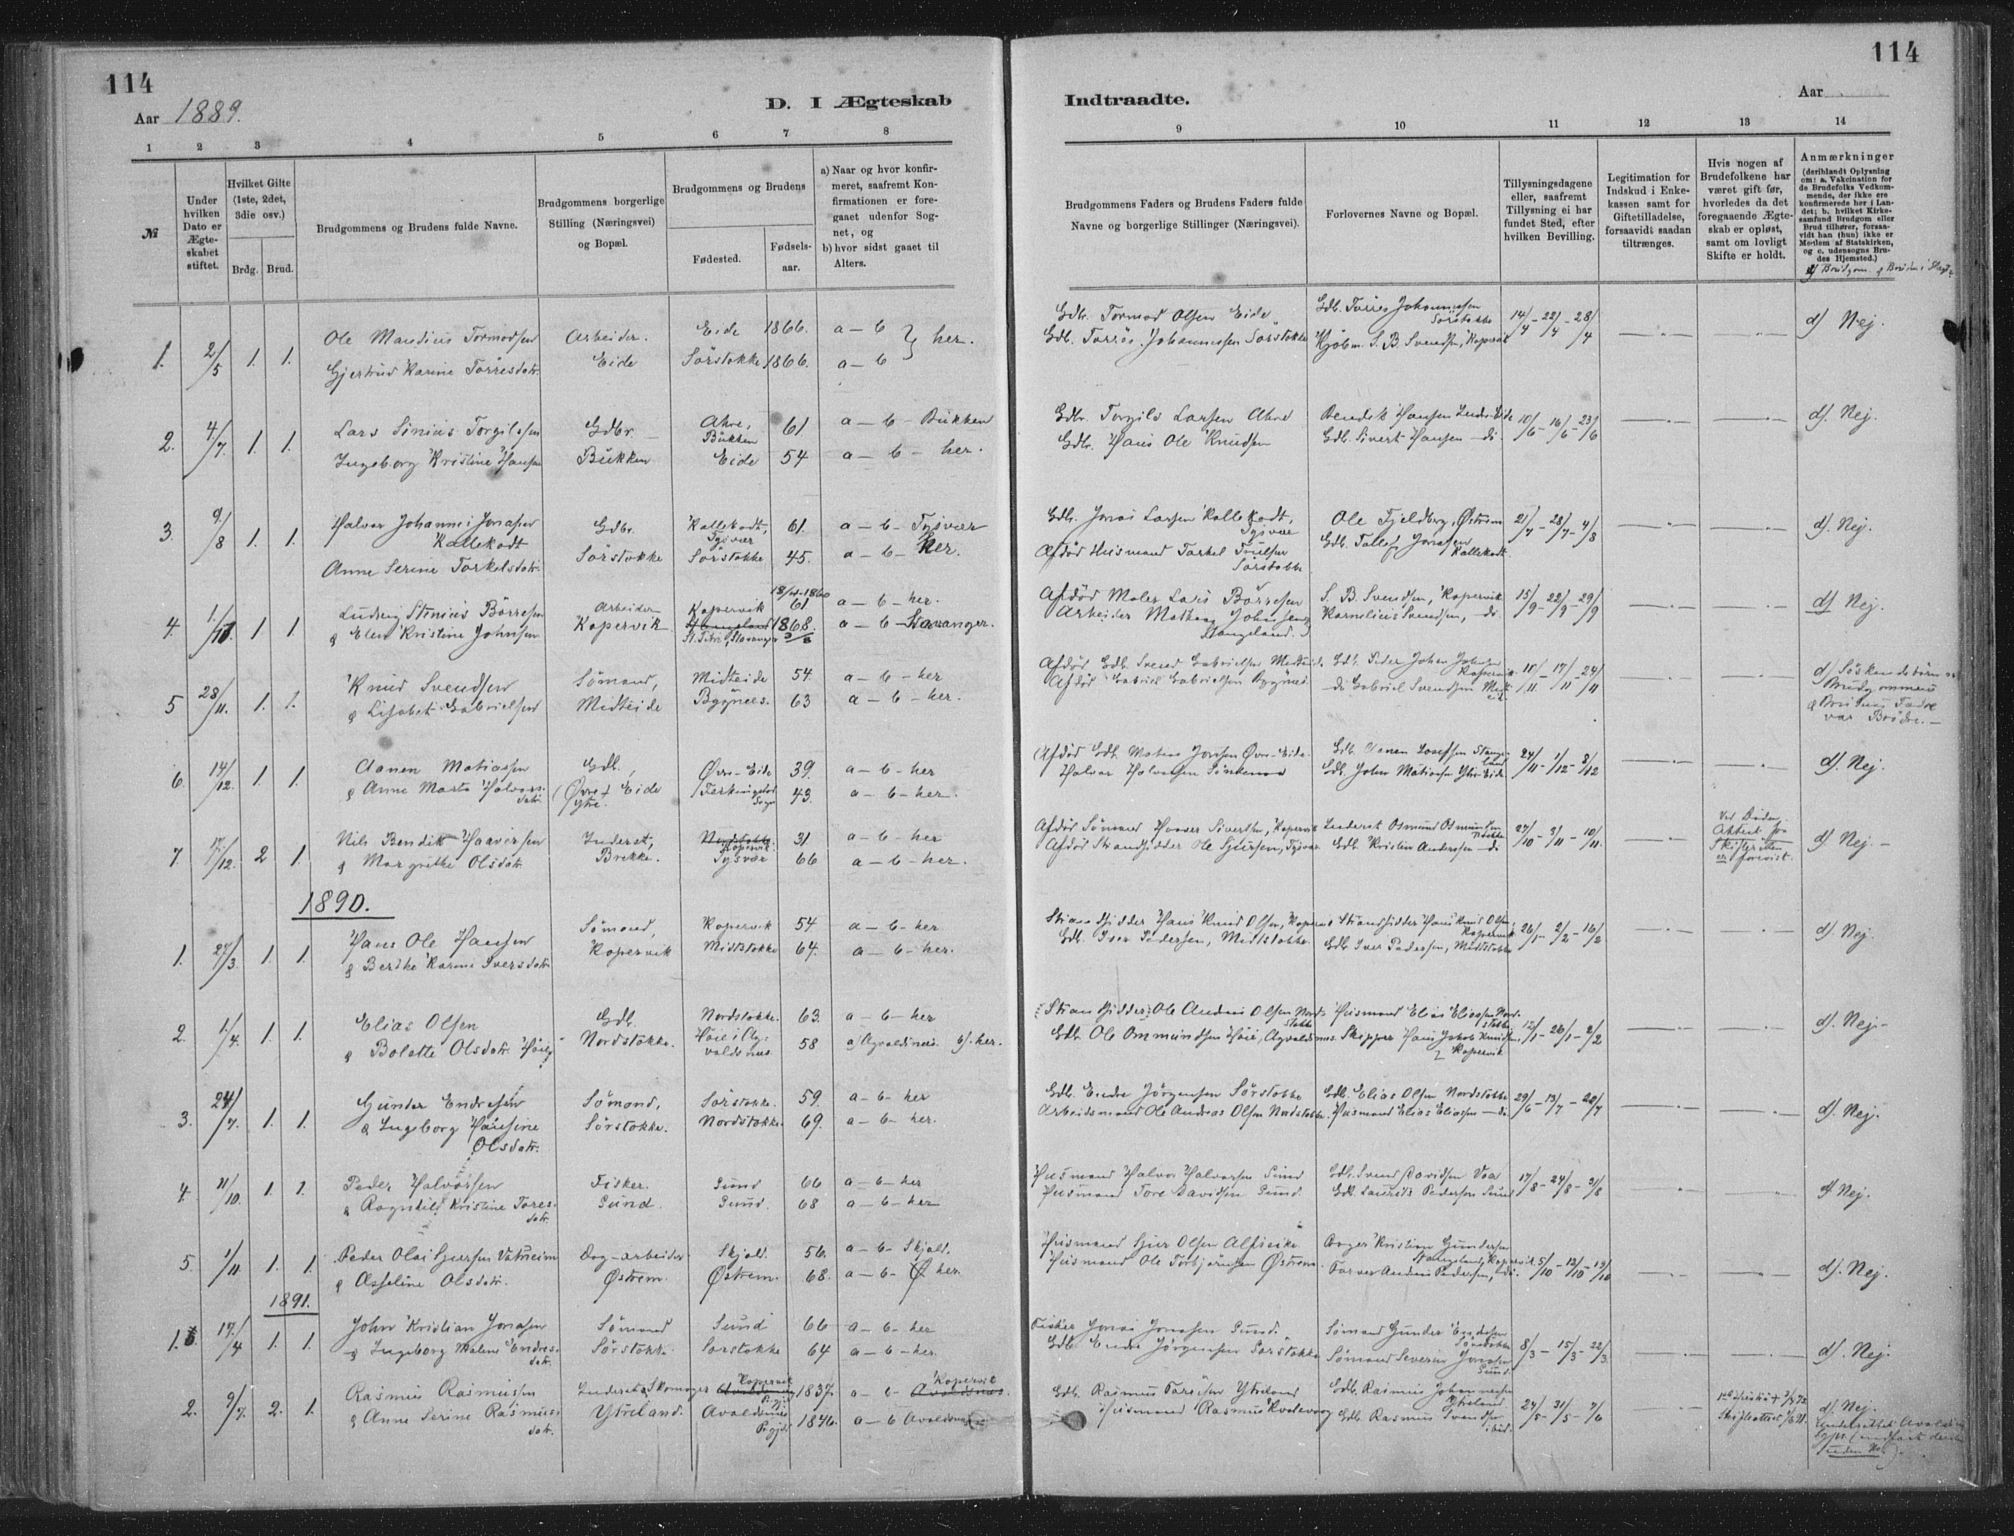 114
Aar 1889.
D. I Ægteskab
1 2 3 4 5 6 7 8
№
Under hvilken Dato er Ægteskabet stiftet.
Hvilket Gifte (1ste, 2det, 3die osv.)
Brdg. Brud.
Brudgommens og Brudens fulde Navne.
Brudgommens borgerlige Stilling (Næringsvei) og Bopæl.
Brudgommens og Brudens
Fødested.
Fødselsaar.
a) Naar og hvor konfirmeret, saafremt Konfirmationen er foregaaet udenfor Sognet, og
b) hvor sidst gaaet til Alters.
1. 2/5 1. 1. Ole Mandius Tormodsen Arbeider. Eide 1866. a – b } her.
Gjertrud Karine Torresdtr. Eide Sørstokke 1866. a – b
2. 4/7 1. 1. Lars Sinius Torgilssen Gdbr. Ahre, Bukken 61 a – b – Bukken
Ingeborg Kristine Hansen Bukken Eide 54 a – b – her.
3. 9/8 1. 1. Halvor Johannes Jonasen Kallekodt Gdbr. Kallekodt, Tysvær 61. a – b – Tysvær
Anne Serine Torkelsdatr. Sørstokke Sørstokke 45. a – b – her.
4. 1/10 1 1 Ludvig Stinius Børresen Arbeider Kopervik 61 a – b – her.
& Elen Kristine Johnsen Kopervik 1868. a – b – Stavanger.
5 28/11. 1. 1. Knud Svendsen Sømand, Midteide 54. a – b – her
& Lisabet Gabrielsen Midteide Bygnes. 63 a – b – her.
6. 14/12. 1. 1. Aanen Matiassen Gdb., Øvre-Eide 39. a – b – her
& Anne Marta Halvorsdatr. (Øvre + Ytre Eide Ferkingstad Sogn 43. a – b – her.
7. 17/12. 2 1. Nils Bendik Haaversen Inderst, Kopervik 31 a – b – her
& Margrethe Olsdatr. Brekke. Tysvær 66 a – b – her.
1890.
1. 27/3. 1. 1. Hans Ole Hansen Sømand, Kopervik 54 a – b – her
& Berthe Karine Iversdatr. Kopervik Midtstokke 64. a – b – her.
2. 1/4. 1. 1. Elias Olsen Gdb. Nordstokke. 63. a – b – her
& Bolette Olsdatr. Høie Nordstokke. Høie i Agvaldsnes 58 a) Agvaldsnes b). her.
3. 24/7. 1. 1. Gunder Endresen Sømand, Sørstokke. 59. a – b – her
& Ingeborg Hansine Olsdatr. Sørstokke. Nordstokke 69. a – b – her.
4. 11/10 1. 1. Peder Halvorsen Fisker. Sund 66 a – b – her
& Ragnhild Kristine Toresdatr. Sund. Sund. 68 a – b – her
5. 1/11 1. 1. Peder Olai Sjursen Vatneim Dag-arbeider Skjold. 56. a – b – Skjold.
& Asseline Olsdatr. Østrem. Østrem. 68. a – b – her.
1891.
1. 17/4 1. 1. John Kristian Jonasen Sømand Sund 66 a – b – her
& Ingeborg Malene Endresdatr. Sørstokke. Sørstokke 64 a – b – her.
2. 9/7. 2. 1. Rasmus Rasmussen Inderst & Skomager Kopervik 1837. a – b – Kopervik
& Anne Serine Rasmusdatr. Ytreland. Avaldsnes 1846. a – b Avaldsnes
114
Indtraadte.
Aar
9 10 11 12 13 14
Brudgommens Faders og Brudens Faders fulde Navne og borgerlige Stillinger (Næringsvei).
Forlovernes Navne og Bopæl.
Tillysningsdagene eller, saafremt Tillysning ei har fundet Sted, efter hvilken Bevilling.
Legitimation for Indskud i Enkekassen samt for Giftetilladelse, forsaavidt saadan tiltrænges.
Hvis nogen af Brudefolkene har været gift før, hvorledes da det foregaaende Ægteskab er opløst, samt om lovligt Skifte er holdt.
Anmærkninger
(deriblandt Oplysning om: a. Vakcination for de Brudefolks Vedkommende, der ikke ere konfirmerede her i Landet; b. hvilket Kirkesamfund Brudgom eller Brud tilhører, forsaavidt han (hun) ikke er Medlem af Statskirken, og c. udensogns Brudes Hjemsted.)
d) Brudgom & Bruden i Slægt
Gdb. Tormod Olsen Eide Gdb. Torres Johannesen Sørstokke 14/4 – 22/4 – 28/4 d) Nej.
Gdb. Torres Johannesen Sørstokke Kjøbm. S. B. Svendsen, Kopervik
Gdbr. Torgils Larsen Ahre Bendik Hansen Indre-Eide 10/6 – 16/6 – 23/6 d) Nej.
Gdbr. Hans Ole Knudsen Gdb. Sivert Hansen – do
Gdb. Jonas Larsen Kallekodt, Tysvær Ole Fjeldberg, Østrem 21/7 – 28/7 – 4/8 d). Nej.
Afdød Husmand Torkel Sørstokke Gdb. Tollef Jonasen Kallekodt.
Afdød Maler Lars Børresen S. B. Svendsen, Kopervik 15/9 – 22/9 – 29/9 d) Nej.
Arbeider Mathias Johnsen Stangeland. Kornelius Svendsen, – do
Afdød Gdb. Svend Gabrielsen Midteide. Gdb. Peder Johan Kopervik 10/11 – 17/11 – 24/11 d) Søskendebørn
Afdød Gabriel Gabrielsen Bygnes. do Gabriel Svendsen Midteide Brudgommens & Brudens Fædre var Brødre. –
Afdød Gdb. Matias Jonsen Øvre-Eide Gdb. Aanen Josefsen Stangeland 24/11 – 1/12 – 8/12 d). Nej.
Halvor Halvorsen Gdb. John Matiasen Ytre-Eide
Afdød Sømand Haaver Sivertsen, Kopervik Inderst Osmund Osmundsen 27/10 – 3/11 – 10/11. Ved Døden Attest fra Skifteretten er forevist. d) Nej. –
Afdød Strandsidder Ole Sjursen, Tysvær Gdb. Kristen Andersen – do
Strandsidder Hans Knud Olsen, Kopervik Strandsidder Hans Knud Olsen Kopervik 26/1 – 2/2 – 16/2 d). Nej.
Gdb. Iver Pedersen, Midtstokke. Gdb. Iver Pedersen, Midtstokke
Strandsidder Ole Andreas Olsen Nordstokke Husmand Elias Eliassen Nordstokke 12/1 – 26/1 – 2/2 d). Nej –
Gdb. Ole Ommundsen Høie, Agvaldsnes. Skipper Hans Jakob Knudsen, Kopervik
Gdb. Endre Jørgensen Sørstokke Gdb. Elias Olsen Nordstokke 29/6 – 13/7 – 20/7 d). Nej.
Arbeidsmand Ole Andreas Olsen Nordstokke. Husmand Elias Eliassen – do
Husmand Halvor Halvorsen Sund Gdb. Svend Davidsen Vaa 17/8 – 24/8 – 31/8 d) Nej.
Husmand Tore Davidsen Sund. Gdb. Laurits Pedersen Sund
Husmand Sjur Olsen Kristian Gundersen Stangeland, Kopervik 5/10 – 12/10 – 19/10 d). Nej.
Husmand Ole Torbjørnsen Østrem. Farver Andreas Pedersen, do.
Fisker Jonas Jonasen Sund. Sømand Gunder Endresen Sørstokke 8/3 – 15/3 – 22/3 d). Nej.
Gdb. Endre Jørgensen Sørstokke Sømand Severin Jonasen Sund.
Gdb. Rasmus Ytreland Gdb. Rasmus Johannesen Ytreland 24/5 – 31/5 – 7/6 d). Nej.
Husmand Rasmus Kvalevaag Gdb. Rasmus ibid.